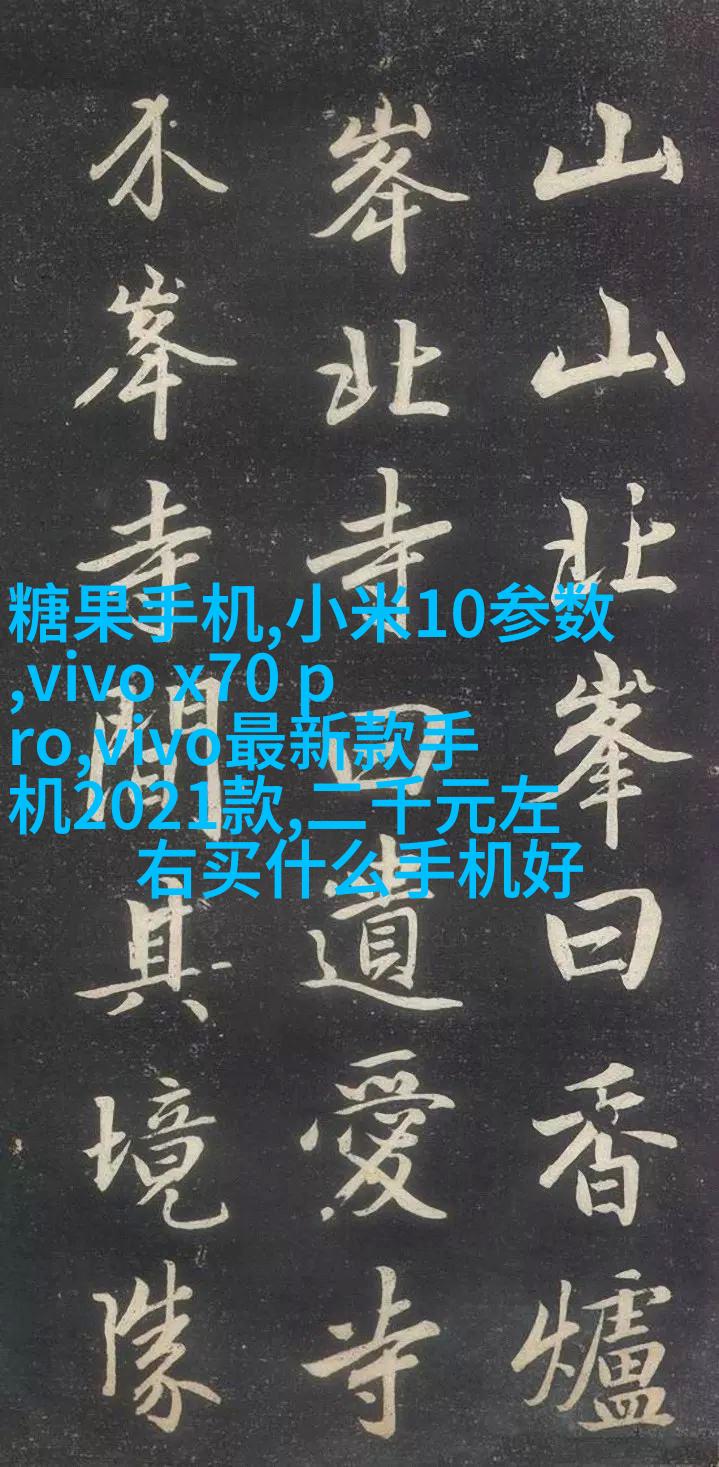 山山北峯曰香爐
峯北寺曰遺愛寺
介峯寺間其境勝
糖果手机,小米10参数
,vivo x70 p
ro,vivo最新款手
机2021款,二千元左
右买什么手机好